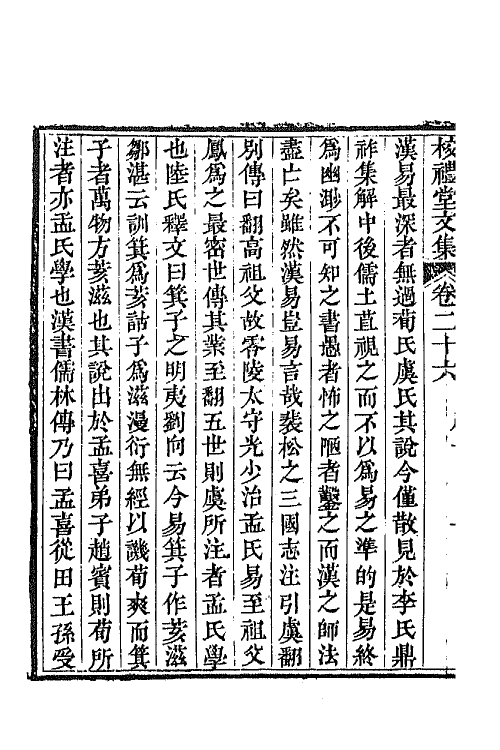 校禮堂文集 卷二十六
漢易最深者無過荀氏虞氏其說今僅散見於李氏鼎
祚集解中後儒土苴視之而不以爲易之準的是易終
爲幽渺不可知之書愚者怖之陋者鑿之而漢之師法
盡亡矣雖然漢易豈易言哉裴松之三國志注引虞翻
別傳曰翻高祖父故零陵太守光少治孟氏易至祖父
鳳爲之最密世傳其業至翻五世則虞所注者孟氏學
也陸氏釋文曰箕子之明夷劉向云今易箕子作荄滋
鄒湛云訓箕爲荄詁子爲滋漫衍無經以譏荀爽而箕
子者萬物方荄滋也其說出於孟喜弟子趙賓則荀所
注者亦孟氏學也漢書儒林傳乃曰孟喜從田王孫受